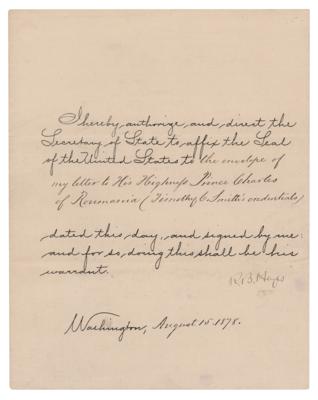 I hereby authorize and direct the
Secretary of State to affix the Seal
of the United States to the envelope of
my letter to His Highness Prince Charles
of Roumania (Timothy C. Smith's credentials)
dated this day, and signed by me:
and for so doing this shall be his
warrant.
R.B. Hayes
Washington, August 15. 1878.